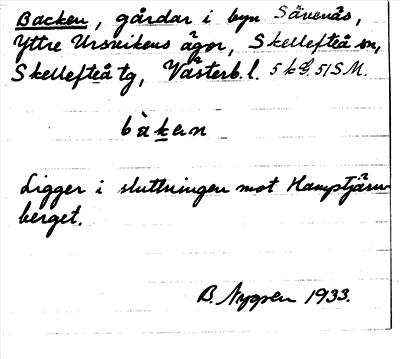 Backen, gårdar i byn Sävenäs,
Yttre Ursvikens ägor, Skellefteå sn,
Skellefteå tg, Västerb. l. 5 k G. 51 SM.
bàken
Ligger i sluttningen mot Hamptjärn
berget.
B. Nygren 1933.